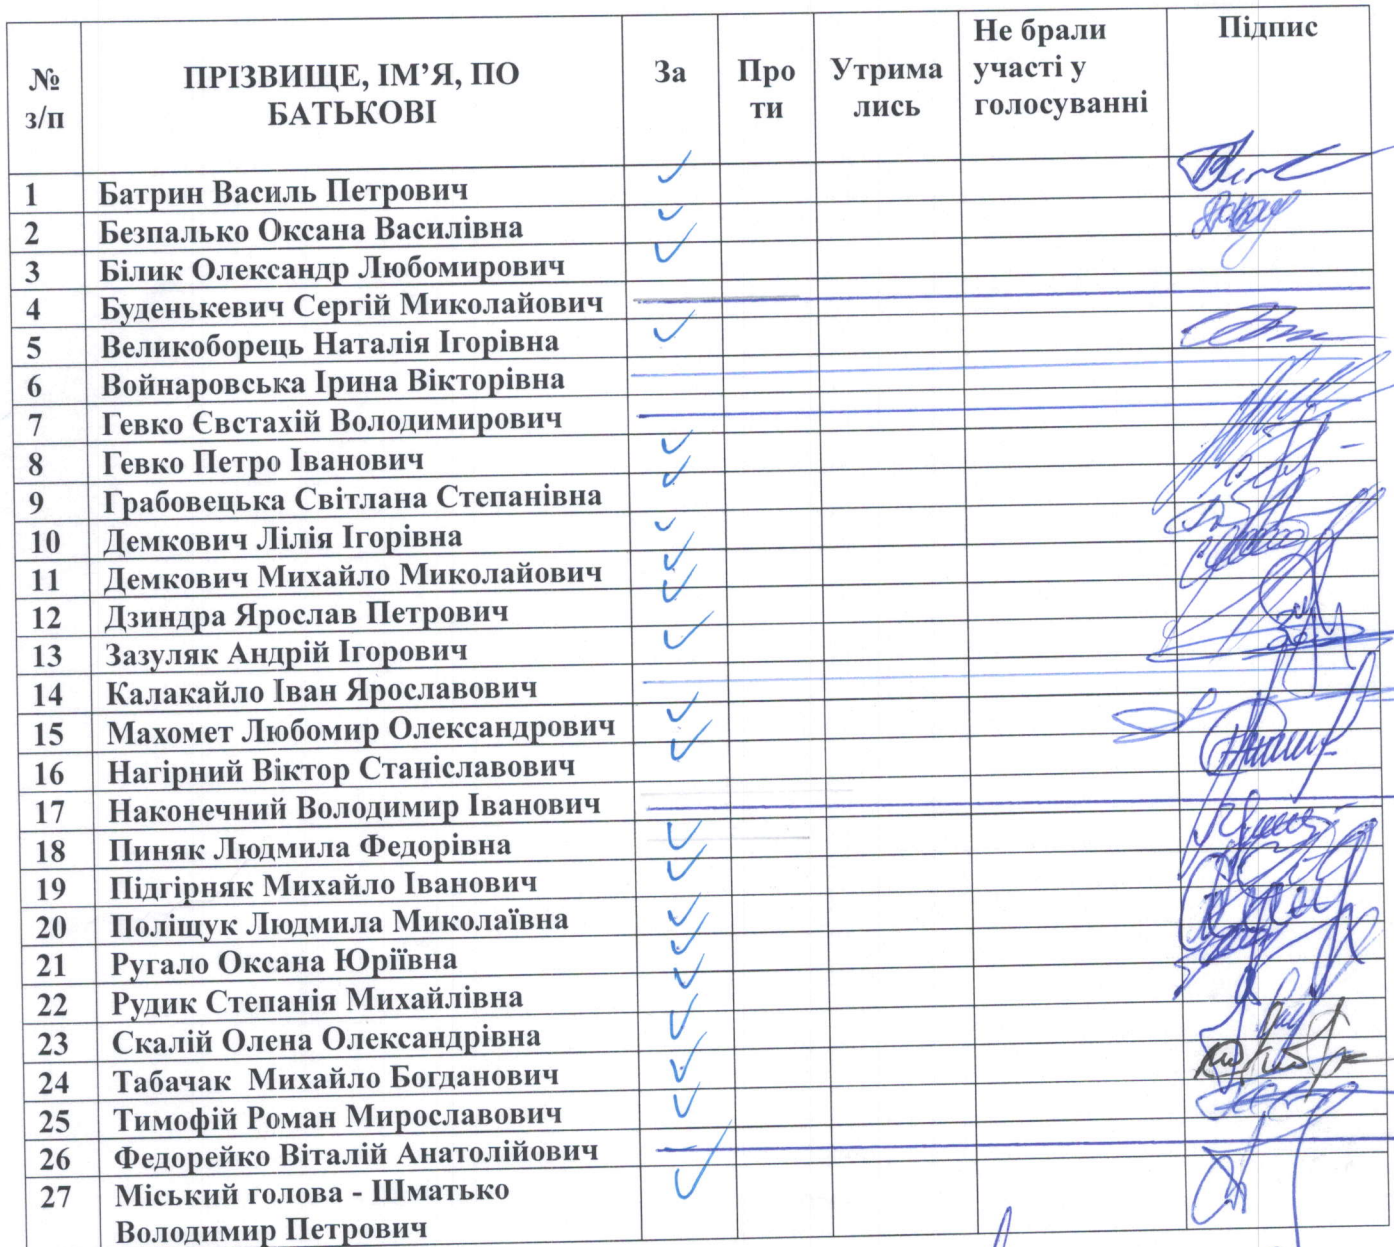 № з/п ПРІЗВИЩЕ, ІМ’Я, ПО БАТЬКОВІ За Про ти Утрима лись Не брали участі у голосуванні Підпис
1 Батрин Василь Петрович ✓
2 Безпалько Оксана Василівна ✓
3 Білик Олександр Любомирович ✓
4 Буденькевич Сергій Миколайович
5 Великоборець Наталія Ігорівна ✓
6 Войнаровська Ірина Вікторівна
7 Гевко Євстахій Володимирович
8 Гевко Петро Іванович ✓
9 Грабовецька Світлана Степанівна ✓
10 Демкович Лілія Ігорівна ✓
11 Демкович Михайло Миколайович ✓
12 Дзиндра Ярослав Петрович ✓
13 Зазуляк Андрій Ігорович ✓
14 Калакайло Іван Ярославович
15 Махомет Любомир Олександрович ✓
16 Нагірний Віктор Станіславович ✓
17 Наконечний Володимир Іванович
18 Пиняк Людмила Федорівна ✓
19 Підгірняк Михайло Іванович ✓
20 Поліщук Людмила Миколаївна ✓
21 Ругало Оксана Юріївна ✓
22 Рудик Степанія Михайлівна ✓
23 Скалій Олена Олександрівна ✓
24 Табачак Михайло Богданович ✓
25 Тимофій Роман Мирославович ✓
26 Федорейко Віталій Анатолійович
27 Міський голова - Шматько ✓
Володимир Петрович